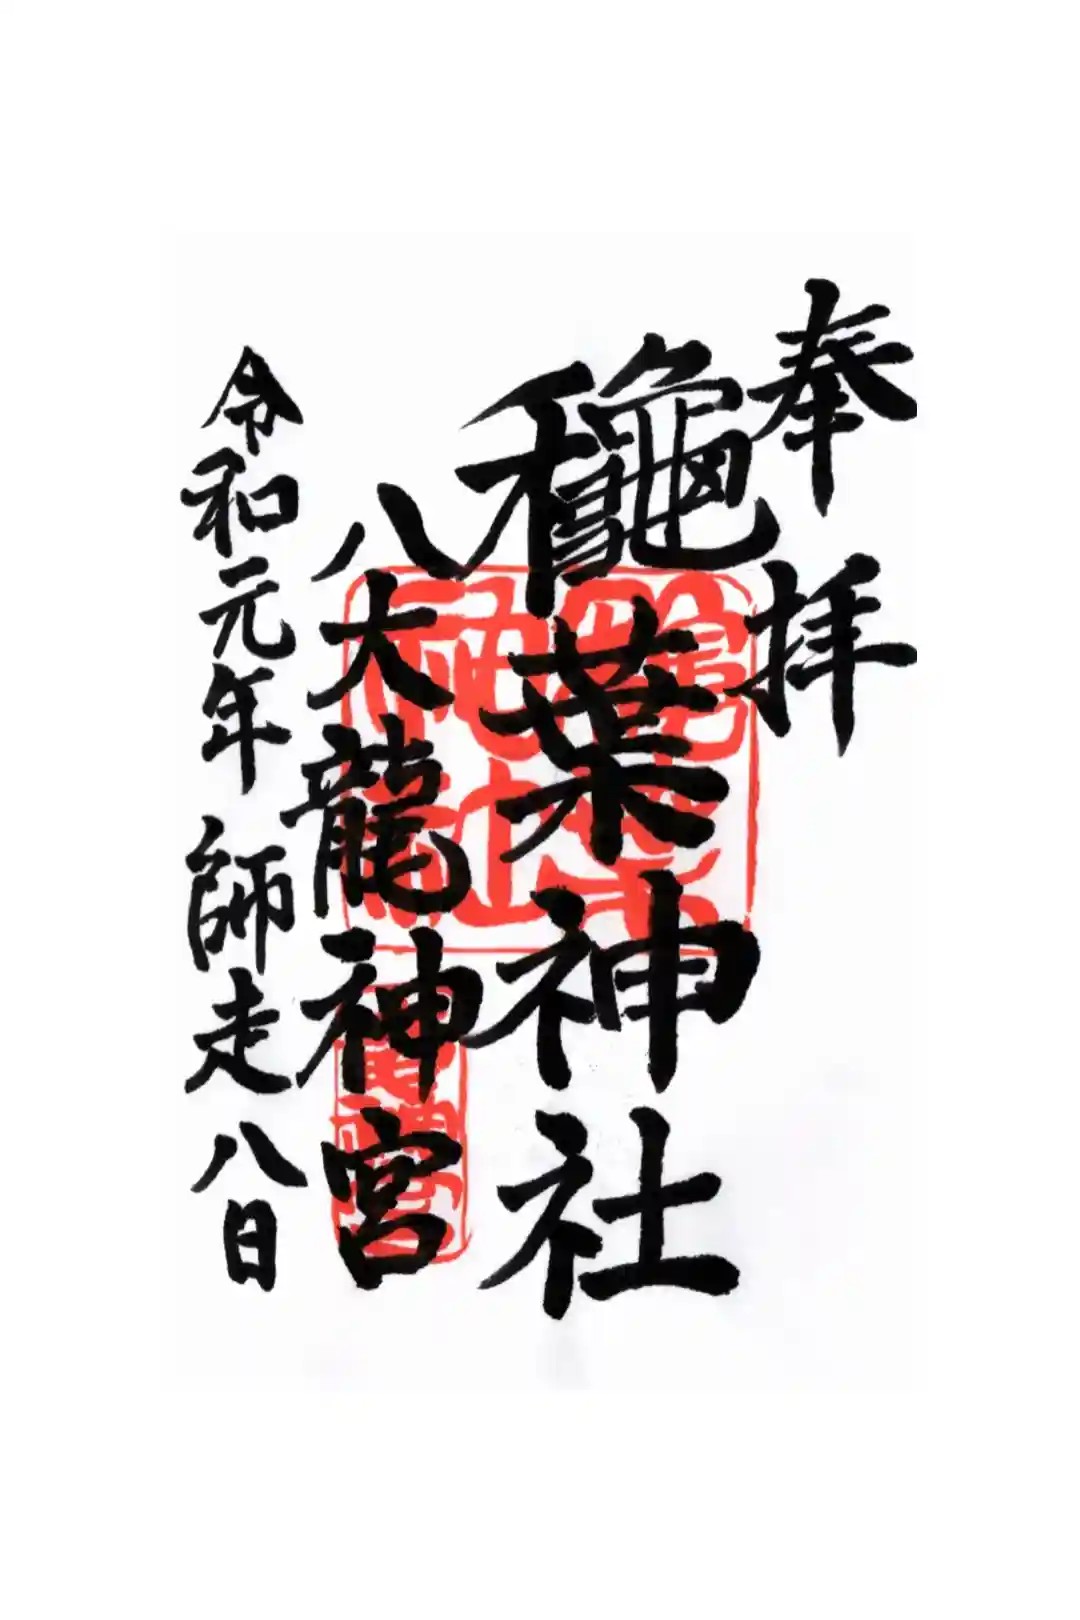 奉拝
穐葉神社
八大龍神宮
令和元年師走八日